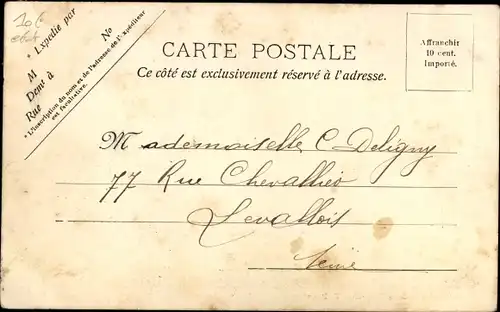 * Expédié par
M
Demt à
Rue No
* L'inscription du nom et de l'adresse de l'Expéditeur
est facultative.
CARTE POSTALE
Ce côté est exclusivement réservé à l'adresse.
Affranchir
10 cent.
Importé.
Mademoiselle C Deligny
77 Rue Chevallier
Levallois
Seine